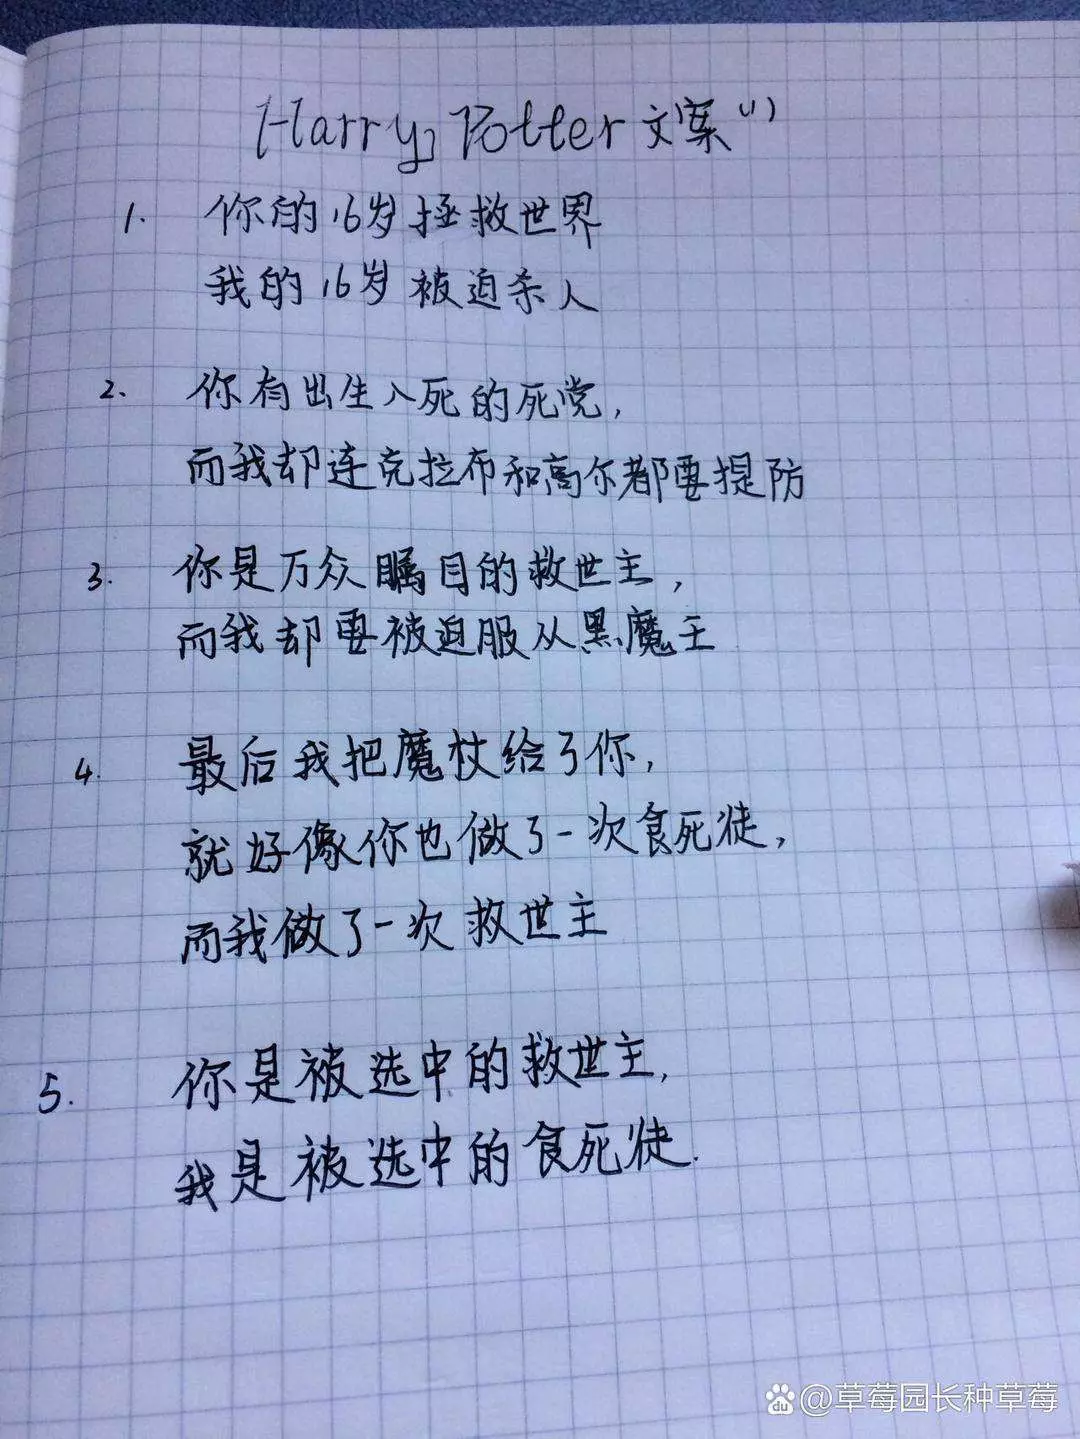 Harry Potter 文案(1)
1. 你的16岁拯救世界
我的16岁被迫杀人
2. 你有出生入死的死党,
而我却连克拉布和高尔都要提防
3. 你是万众瞩目的救世主,
而我却要被迫服从黑魔王
4. 最后我把魔杖给了你,
就好像你也做了一次食死徒,
而我做了一次救世主
5. 你是被选中的救世主,
我是被选中的食死徒.
du @草莓园长种草莓